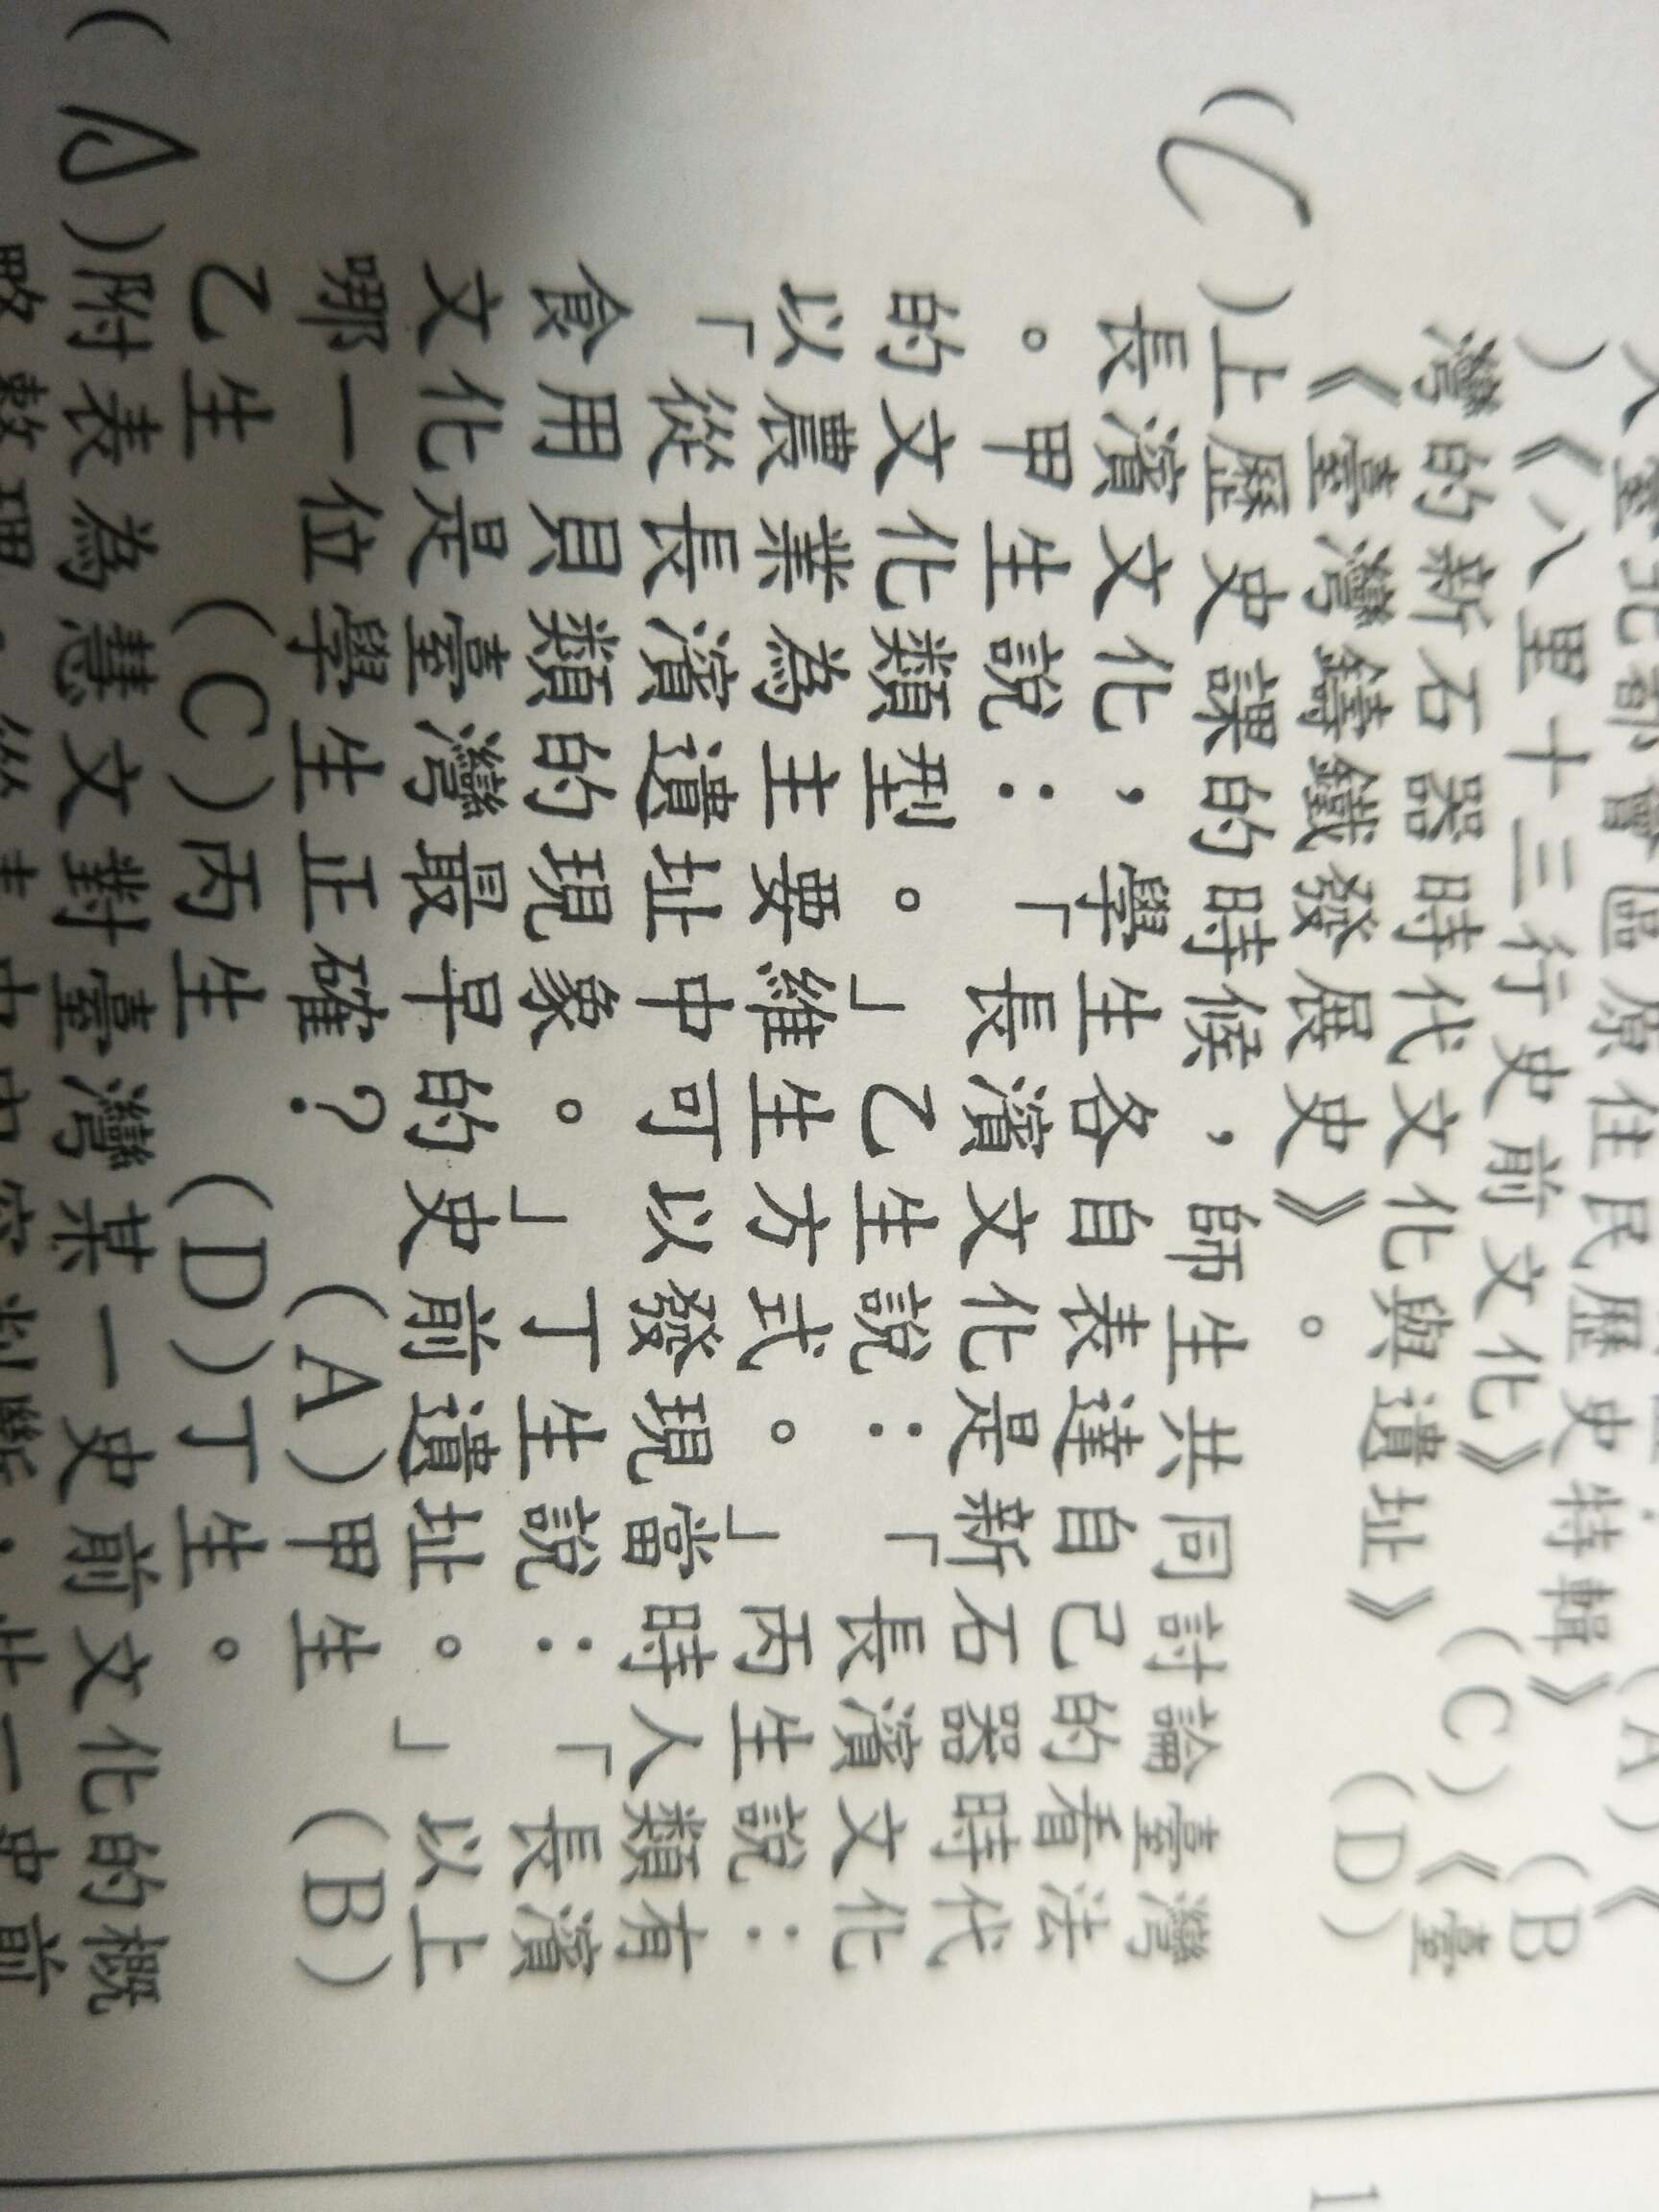 (A)《
臺北都會區原住民歷史特輯》 (B
)《八里十三行史前文化》 (C)《臺
灣的新石器時代文化與遺址》 (D)
《臺灣鑄鐵發展史》。
(C)上歷史課的時候，師生共同討論臺灣
長濱文化，學生各自表達自己的看法
。甲生說：「長濱文化是新石器時代
的文化類型。」乙生說：「長濱文化
以農業為主要維生方式。」丙生說：
「從長濱遺址中可以發現當時人類有
食用貝類的現象。」丁生說：「長濱
文化是臺灣最早的史前遺址。」以上
哪一位學生正確？ (A)甲生 (B)
乙生 (C)丙生 (D)丁生。
(A)附表為慧文對臺灣某一史前文化的概
1